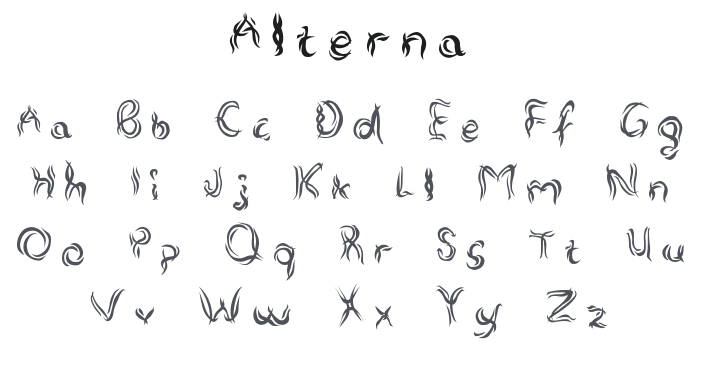 Alterna
Aa Bb Cc Dd Ee Ff Gg
Hh Ii Jj Kk Ll Mm Nn
Oo Pp Qq Rr Ss Tt Uu
Vv Ww Xx Yy Zz